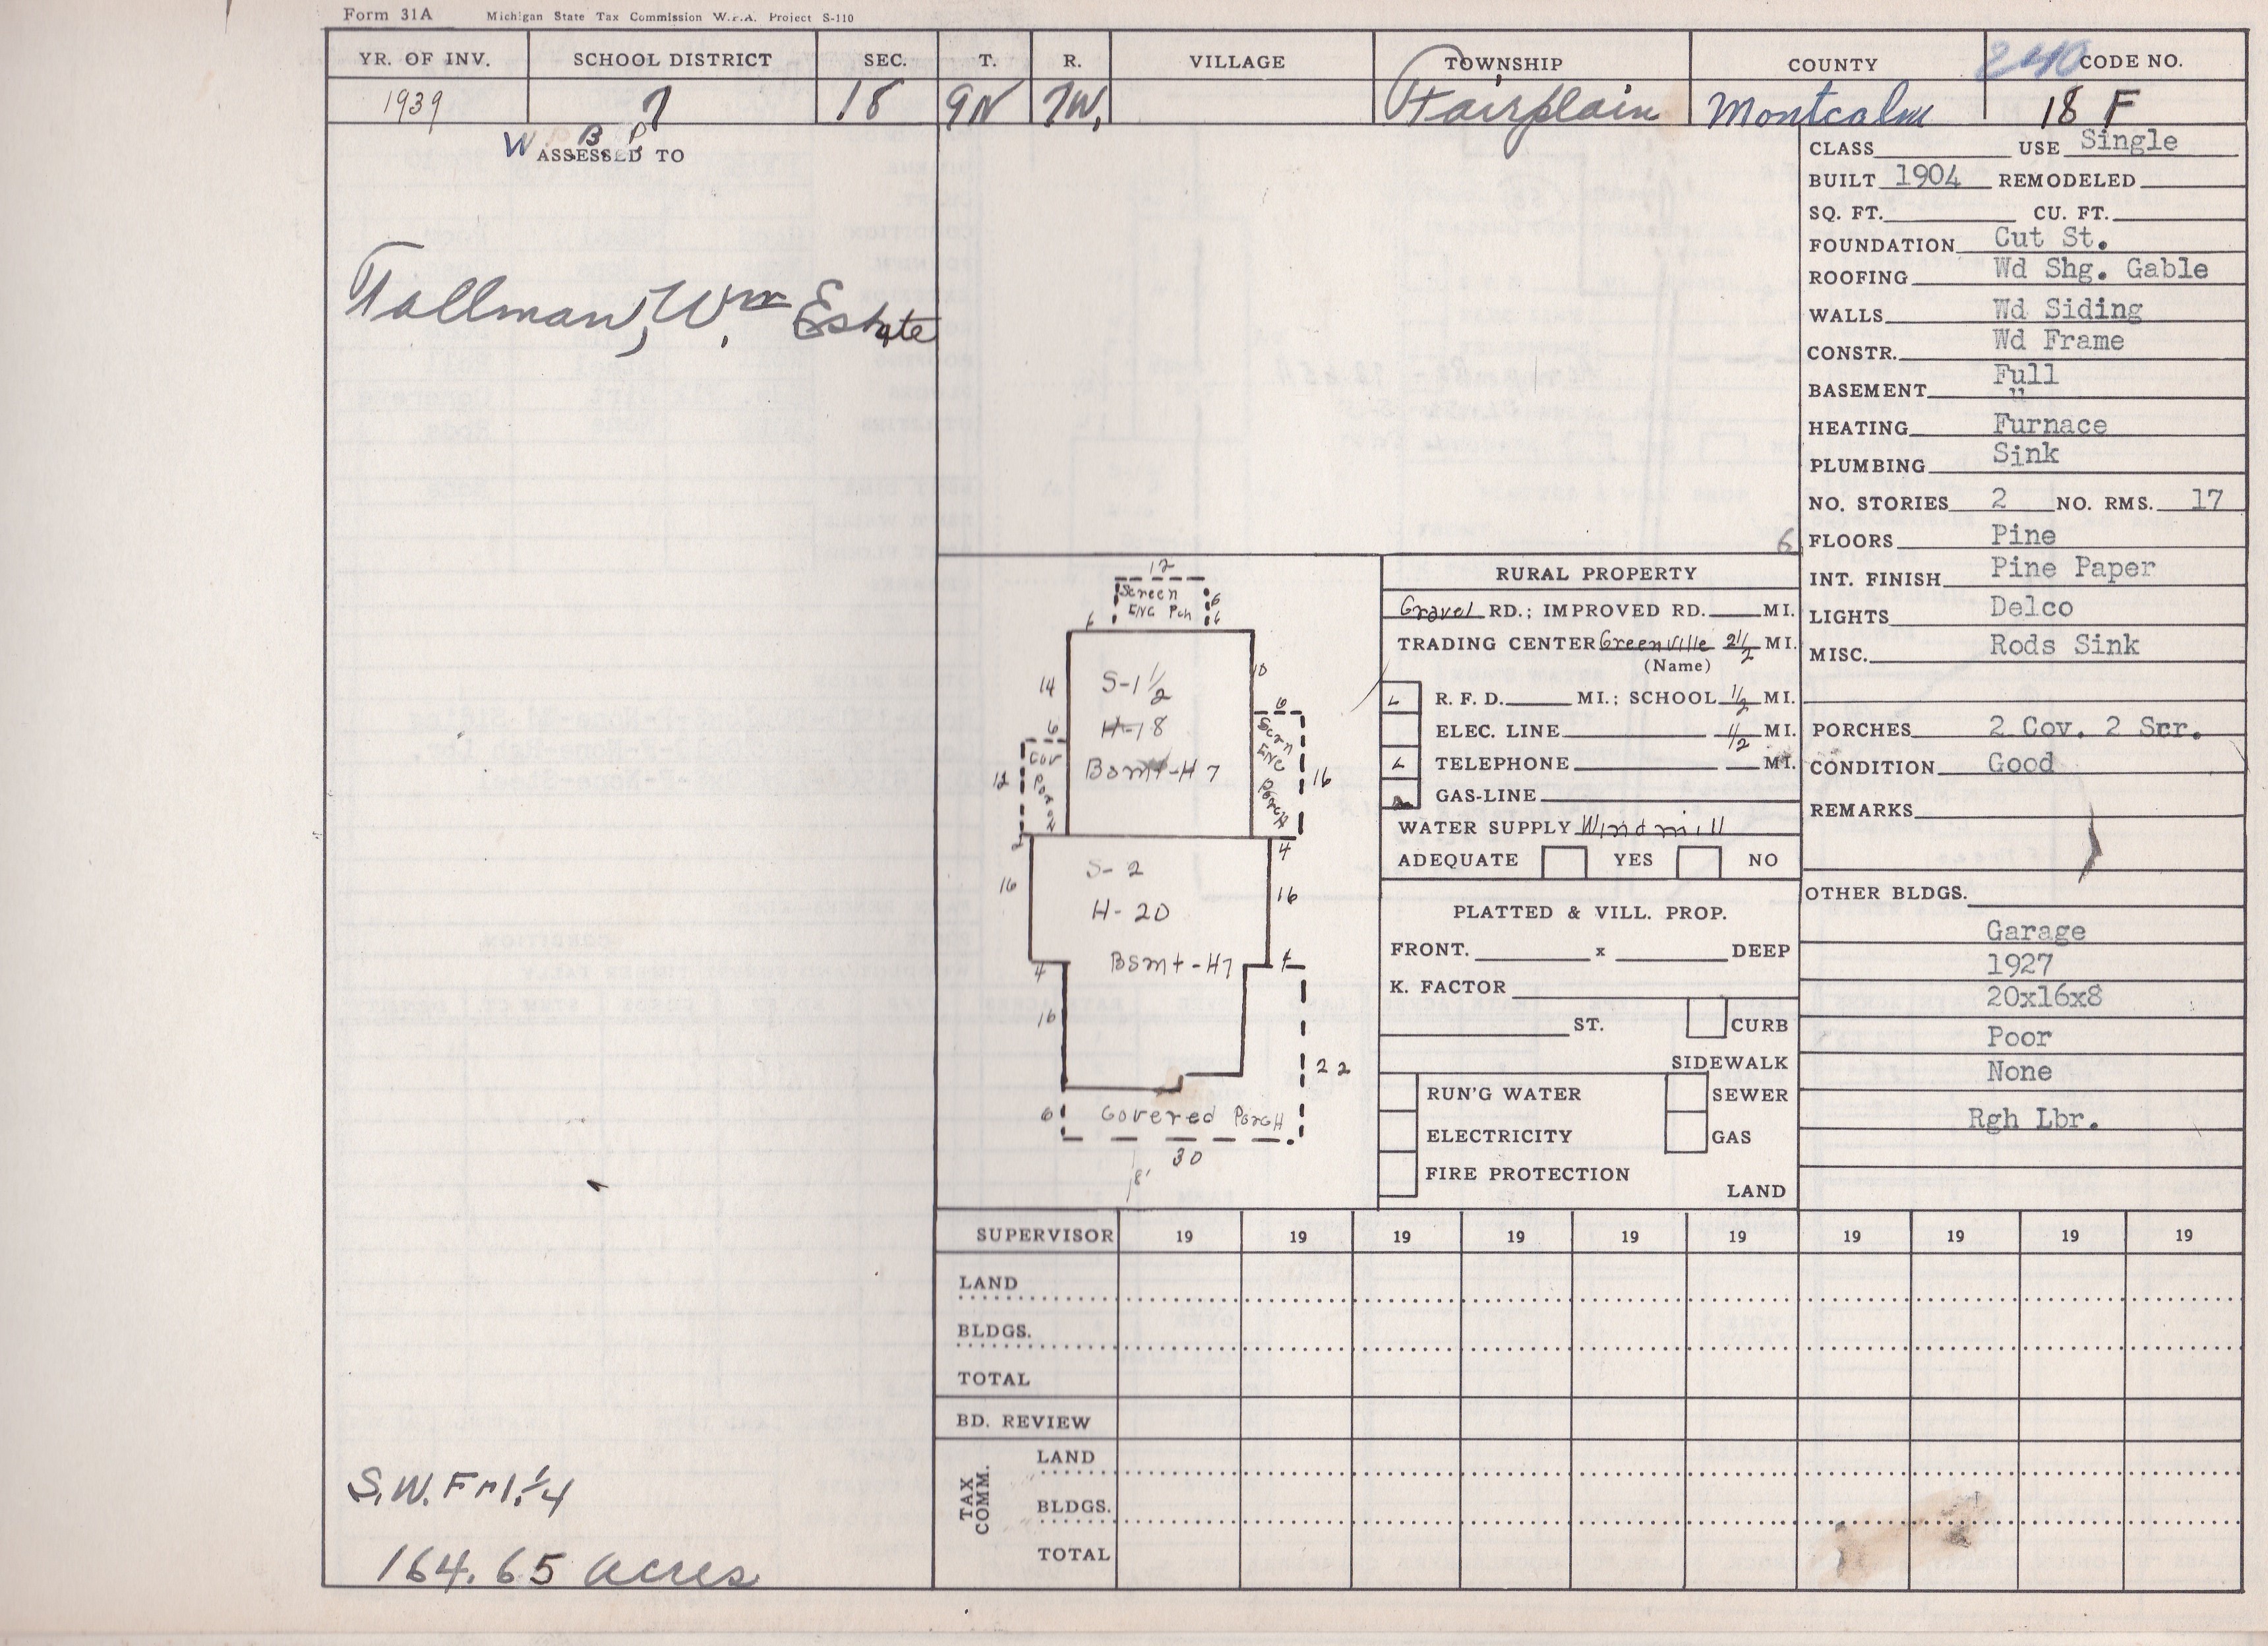 Form 31A Michigan State Tax Commission W.P.A. Project S-110
YR. OF INV. SCHOOL DISTRICT SEC. T. R. VILLAGE TOWNSHIP COUNTY 240 CODE NO.
1939 7 18 9N 7W. Fairplain Montcalm 18 F
W. B. P.
ASSESSED TO
Tallman, Wm Estate
S.W. Frl. 1/4
164.65 acres
12
Screen
ENC Pch
6
6
6
S-1 1/2
H-18
Bsmt-H7
14
6
12
Cov
Porch
2
10
6
Scrn
ENC
Porch
16
4
S-2
H-20
Bsmt-H7
16
16
4
4
16
22
6
Covered Porch
30
8'
6
RURAL PROPERTY
Gravel RD.; IMPROVED RD. MI.
TRADING CENTER Greenville 2 1/2 MI.
(Name)
R. F. D. MI.; SCHOOL 1/2 MI.
ELEC. LINE 1/2 MI.
TELEPHONE MI.
GAS-LINE
WATER SUPPLY Windmill
ADEQUATE YES NO
PLATTED & VILL. PROP.
FRONT. x DEEP
K. FACTOR
ST. CURB
SIDEWALK
RUN'G WATER SEWER
ELECTRICITY GAS
FIRE PROTECTION
LAND
CLASS USE Single
BUILT 1904 REMODELED
SQ. FT. CU. FT.
FOUNDATION Cut St.
ROOFING Wd Shg. Gable
WALLS Wd Siding
CONSTR. Wd Frame
BASEMENT Full
"
HEATING Furnace
PLUMBING Sink
NO. STORIES 2 NO. RMS. 17
FLOORS Pine
INT. FINISH Pine Paper
LIGHTS Delco
MISC. Rods Sink
PORCHES 2 Cov. 2 Scr.
CONDITION Good
REMARKS
OTHER BLDGS.
Garage
1927
20x16x8
Poor
None
Rgh Lbr.
SUPERVISOR 19 19 19 19 19 19 19 19 19 19
LAND
BLDGS.
TOTAL
BD. REVIEW
TAX COMM.
LAND
BLDGS.
TOTAL